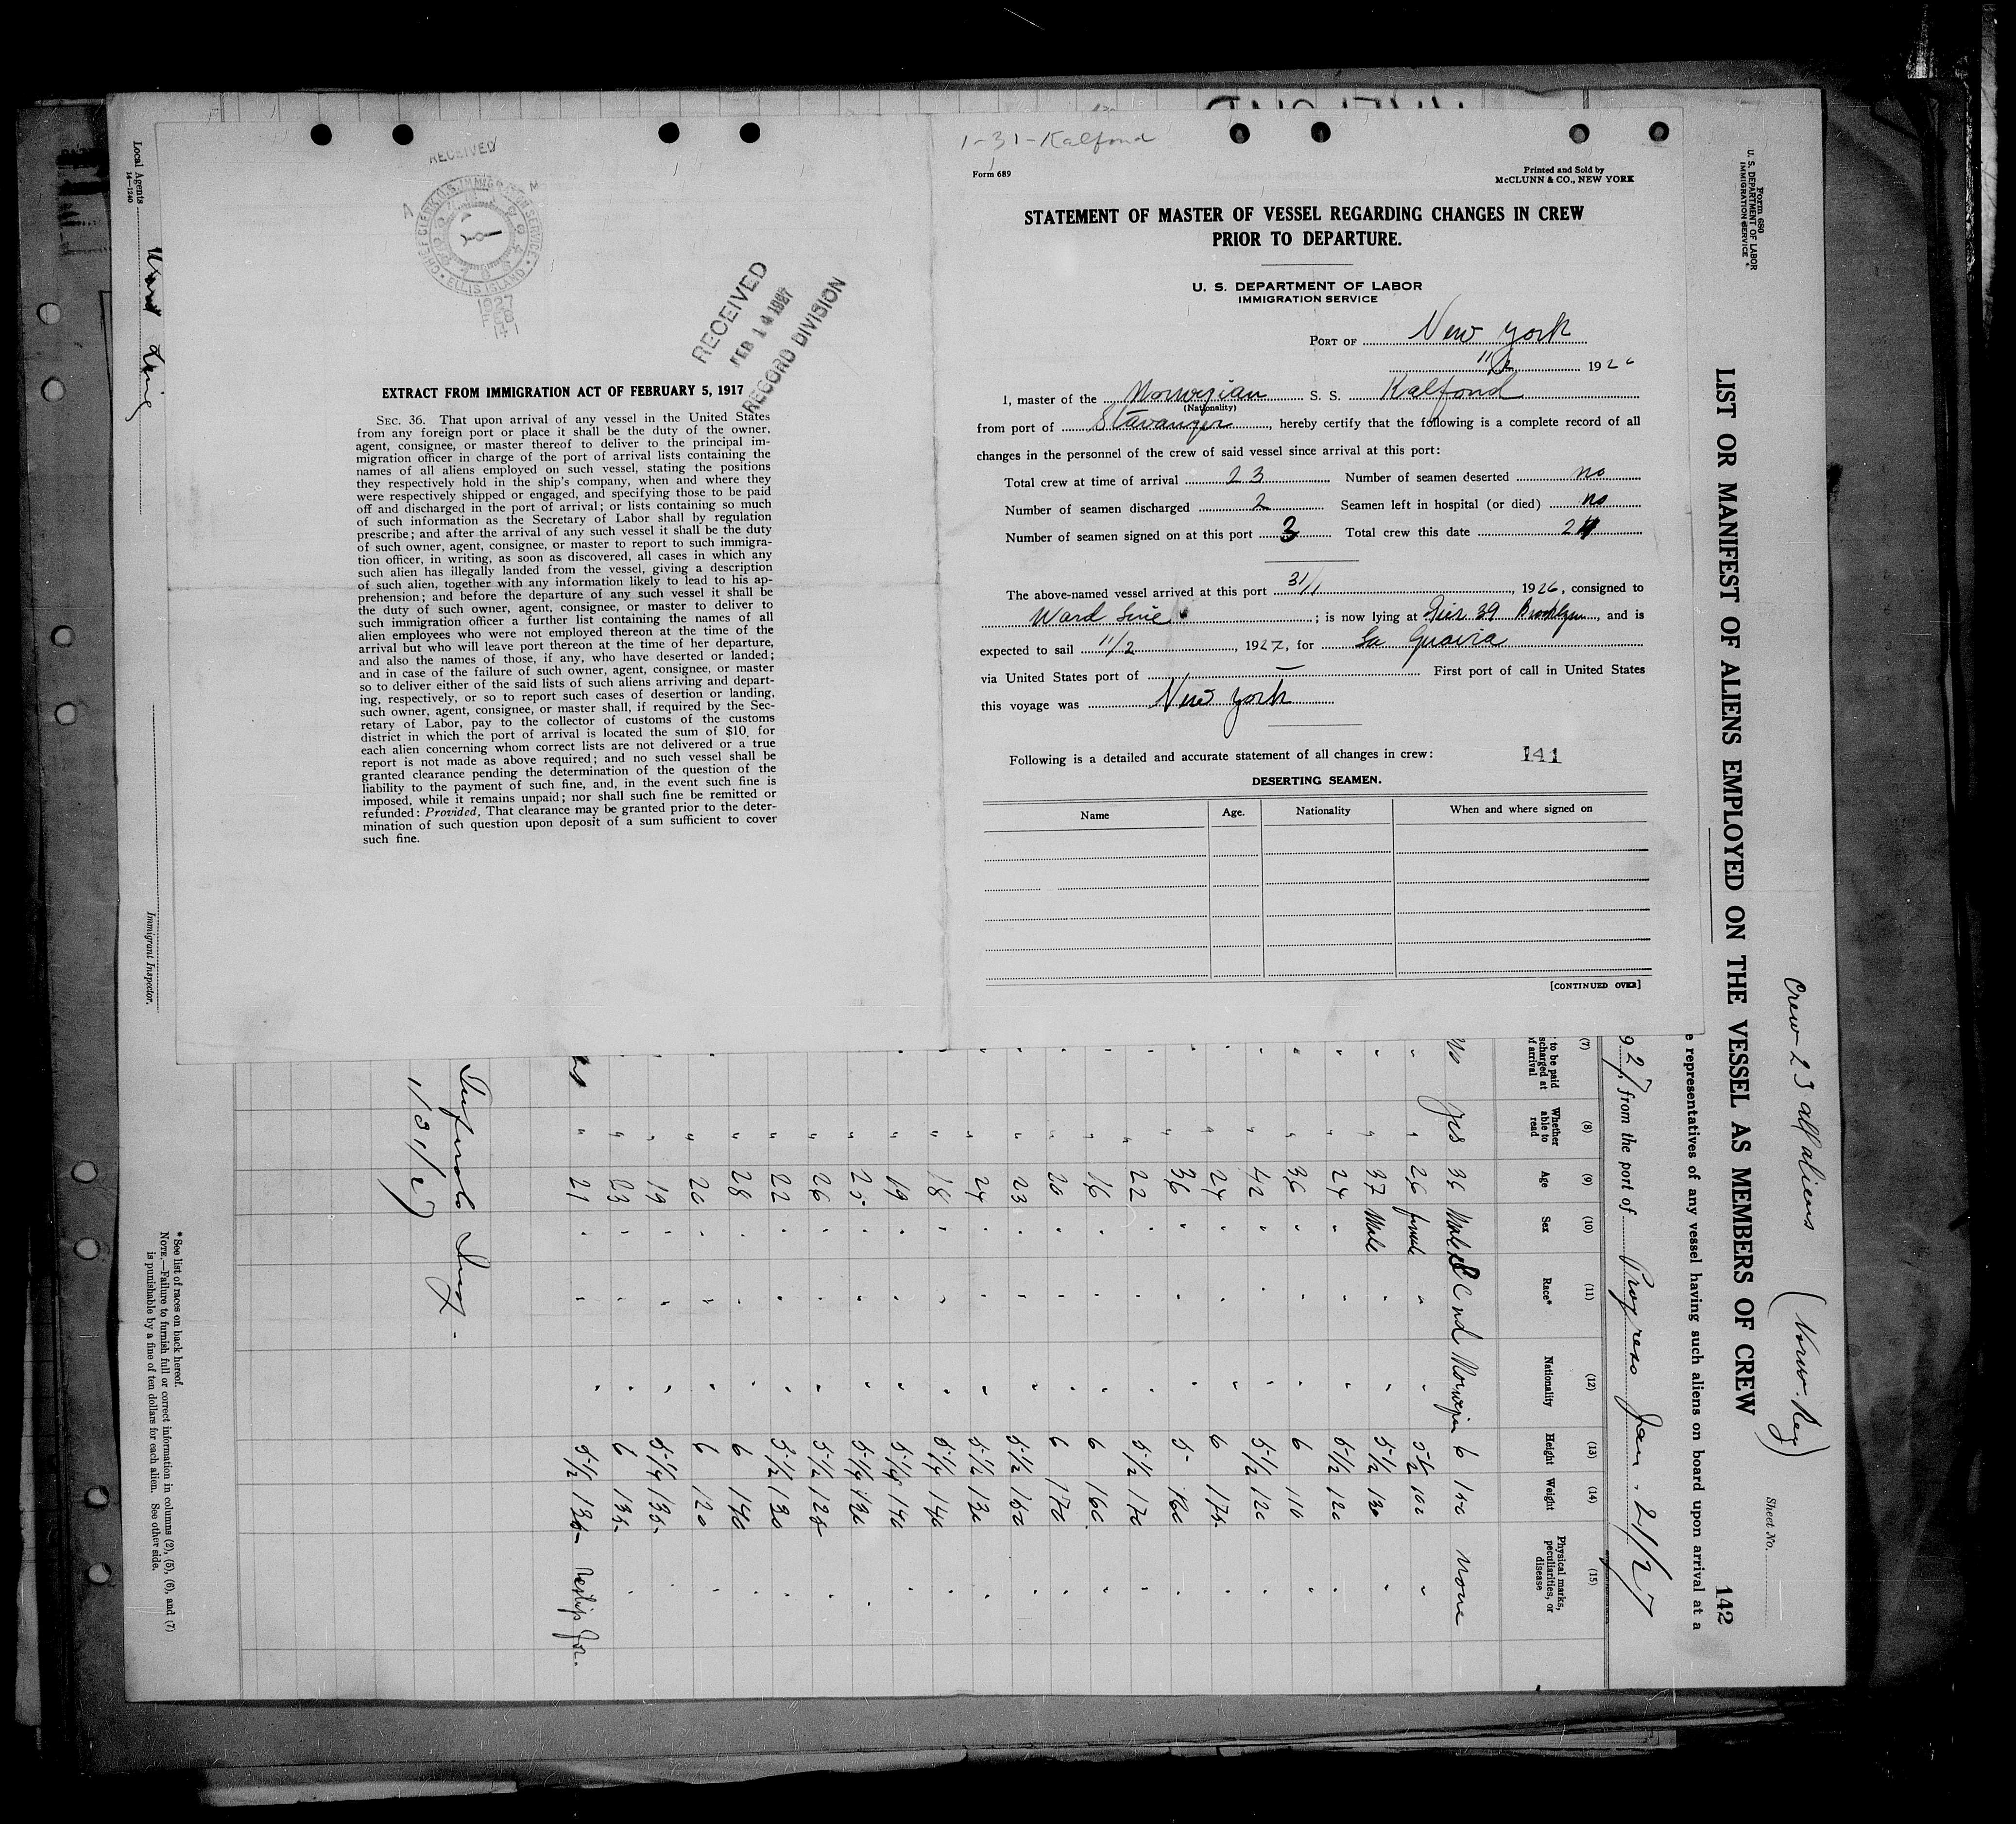 RECEIVED
CHIEF CLERK U.S. IMMIGRATION SERVICE
ELLIS ISLAND
1927
RECEIVED
FEB 14 1927
RECORD DIVISION
EXTRACT FROM IMMIGRATION ACT OF FEBRUARY 5, 1917
SEC. 36. That upon arrival of any vessel in the United States
from any foreign port or place it shall be the duty of the owner,
agent, consignee, or master thereof to deliver to the principal im-
migration officer in charge of the port of arrival lists containing the
names of all aliens employed on such vessel, stating the positions
they respectively hold in the ship's company, when and where they
were respectively shipped or engaged, and specifying those to be paid
off and discharged in the port of arrival; or lists containing so much
of such information as the Secretary of Labor shall by regulation
prescribe; and after the arrival of any such vessel it shall be the duty
of such owner, agent, consignee, or master to report to such immigra-
tion officer, in writing, as soon as discovered, all cases in which any
such alien has illegally landed from the vessel, giving a description
of such alien, together with any information likely to lead to his ap-
prehension; and before the departure of any such vessel it shall be
the duty of such owner, agent, consignee, or master to deliver to
such immigration officer a further list containing the names of all
alien employees who were not employed thereon at the time of the
arrival but who will leave port thereon at the time of her departure,
and also the names of those, if any, who have deserted or landed;
and in case of the failure of such owner, agent, consignee, or master
so to deliver either of the said lists of such aliens arriving and depart-
ing, respectively, or so to report such cases of desertion or landing,
such owner, agent, consignee, or master shall, if required by the Sec-
retary of Labor, pay to the collector of customs of the customs
district in which the port of arrival is located the sum of $10. for
each alien concerning whom correct lists are not delivered or a true
report is not made as above required; and no such vessel shall be
granted clearance pending the determination of the question of the
liability to the payment of such fine, and, in the event such fine is
imposed, while it remains unpaid; nor shall such fine be remitted or
refunded: Provided, That clearance may be granted prior to the deter-
mination of such question upon deposit of a sum sufficient to cover
such fine.
1-31-Kalfond
Form 689
Printed and Sold by
McCLUNN & CO., NEW YORK
STATEMENT OF MASTER OF VESSEL REGARDING CHANGES IN CREW
PRIOR TO DEPARTURE.
U. S. DEPARTMENT OF LABOR
IMMIGRATION SERVICE
PORT OF New York
11/2 1926
I, master of the Norwegian S. S. Kalfond
(Nationality)
from port of Stavanger, hereby certify that the following is a complete record of all
changes in the personnel of the crew of said vessel since arrival at this port:
Total crew at time of arrival 23 Number of seamen deserted no
Number of seamen discharged 2 Seamen left in hospital (or died) no
Number of seamen signed on at this port 3 Total crew this date 24
The above-named vessel arrived at this port 31/1, 1926, consigned to
Ward Line; is now lying at Pier 39 Brooklyn, and is
expected to sail 11/2, 1927, for La Guaira
via United States port of — First port of call in United States
this voyage was New York
Following is a detailed and accurate statement of all changes in crew: 141
DESERTING SEAMEN.
Name Age. Nationality When and where signed on
[CONTINUED OVER]
Form 680
U. S. DEPARTMENT OF LABOR
IMMIGRATION SERVICE
Crew 23 all aliens (Norw. Reg)
Sheet No.
LIST OR MANIFEST OF ALIENS EMPLOYED ON THE VESSEL AS MEMBERS OF CREW 142
e representatives of any vessel having such aliens on board upon arrival at a
927, from the port of Progreso Jan. 21/27
(7) (8) (9) (10) (11) (12) (13) (14) (15)
to be paid
scharged at
of arrival
Whether
able to
read
Age
Sex
Race*
Nationality
Height
Weight
Physical marks,
peculiarities, or
disease
no yes 36 Male Scnd Norwegian 6 150 none
" " 26 female " " 5 1/2 102 "
" " 37 Male " " 5 1/2 130 "
" " 24 " " " 5 1/2 120 "
" " 36 " " " 6 110 "
" " 42 " " " 5 1/2 120 "
" " 24 " " " 6 175 "
" " 36 " " " 5 160 "
" " 22 " " " 5 1/2 170 "
" " 16 " " " 6 160 "
" " 20 " " " 6 170 "
" " 23 " " " 5 1/2 150 "
" " 24 " " " 5 1/2 130 "
" " 18 " " " 5 1/4 140 "
" " 19 " " " 5 1/4 140 "
" " 25 " " " 5 1/4 130 "
" " 26 " " " 5 1/2 128 "
" " 22 " " " 5 1/2 130 "
" " 28 " " " 6 140 "
" " 20 " " " 6 120 "
" " 19 " " " 5 1/4 135 "
" " 23 " " " 6 135 "
" 21 " " " 5 1/2 135
1/31/27
*See list of races on back hereof.
NOTE.—Failure to furnish full or correct information in columns (2), (5), (6), and (7)
is punishable by a fine of ten dollars for each alien. See other side.
Local Agents Ward Line
14—1240
Immigrant Inspector.